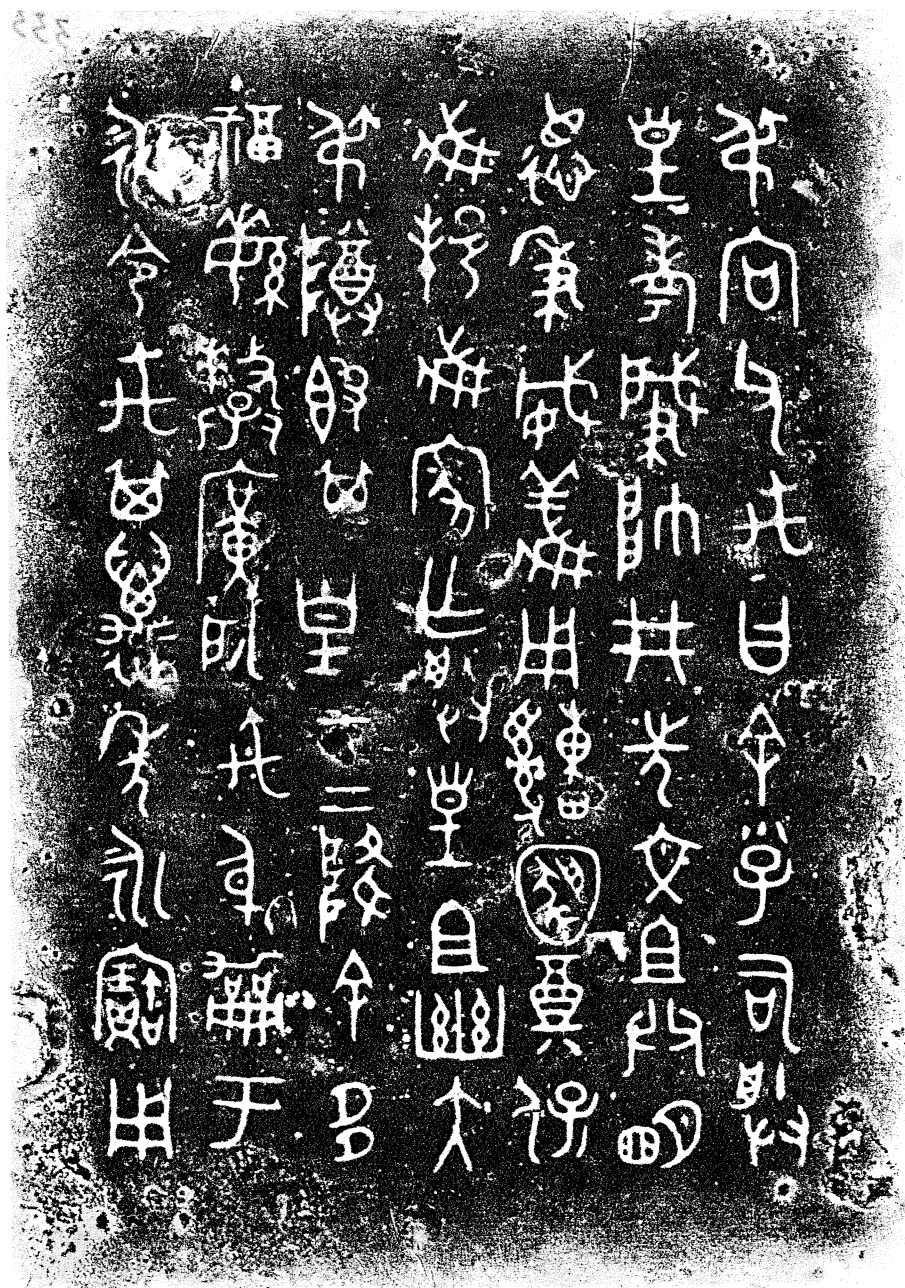 弔向父禹曰余小子司朕
皇考肇帥井先文且共明
德秉威義用𤔲圝奠保
我邦我家乍朕皇且幽大
弔尊簋其皇才上降余多
福繁釐廣啟禹身于
永令禹其萬年永寶用